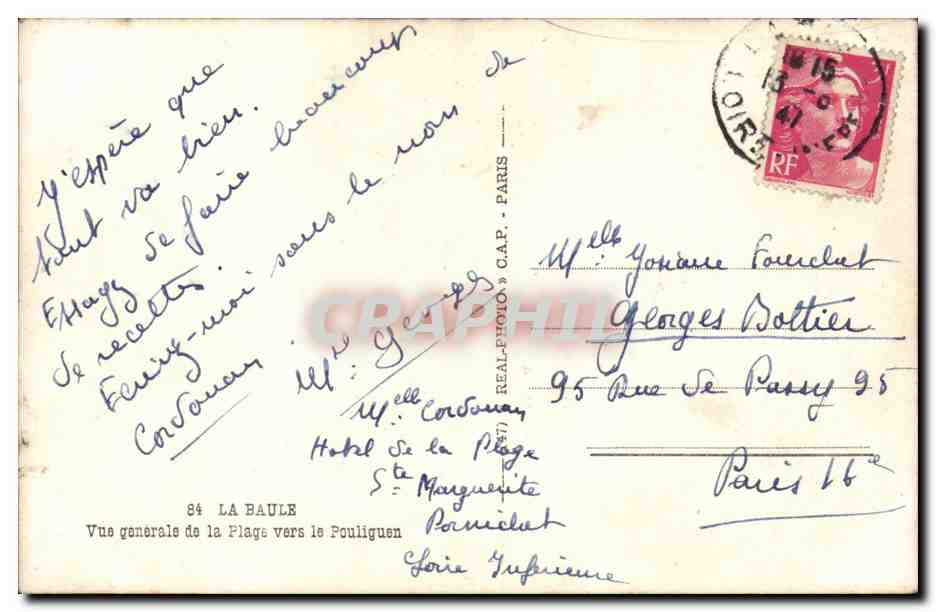 J'espère que
tout va bien.
Essayez de faire beaucoup
de recettes.
Ecrivez-moi sous le nom de
Cordouan
Mme Georges
Melle Cordouan
Hotel de la Plage
Ste Marguerite
Pornichet
Loire Inferieure
84 LA BAULE
Vue generale de la Plage vers le Pouliguen
(47) REAL-PHOTO » C.A.P. - PARIS
18 15
13 -
47
LOIRE
RF
Melle Josiane
Georges Bottier
95 Rue de Passy 95
Paris 16e